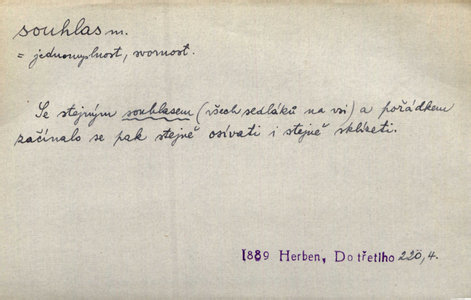 souhlas m.
= jednomyslnost, svornost.
Se stejným souhlasem (všech sedláků na vsi) a pořádkem
začínalo se pak stejně osívati i stejně sklízeti.
1889 Herben, Do třetího 220, 4.